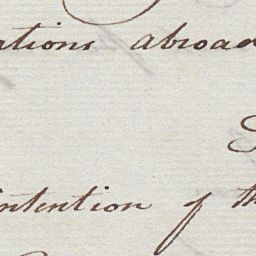 ations abroad
intention of th